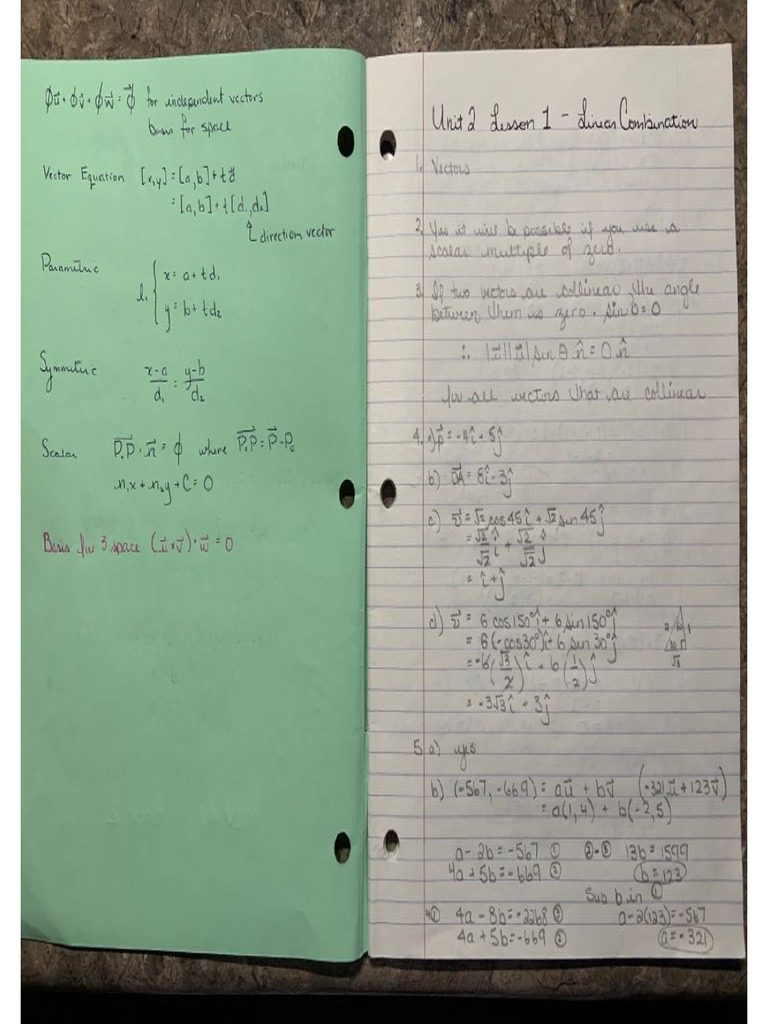 ∅u⃗ + ∅v⃗ + ∅w⃗ = ∅⃗ for independent vectors
basis for space
Vector Equation [x,y] = [a,b] + td⃗
= [a,b] + t[d₁,d₂]
direction vector
Parametric l₁ { x = a + td₁
y = b + td₂
Symmetric x-a/d₁ = y-b/d₂
Scalar P₀P⃗ · n⃗ = ∅ where P₀P⃗ = P⃗ - P₀
n₁x + n₂y + C = 0
Basis for 3 space (u⃗ × v⃗) · w⃗ = 0
Unit 2 Lesson 1 - Linear Combination
1. Vectors
2. Yes it will be possible if you use a
scalar multiple of zero.
3. If two vectors are collinear the angle
between them is zero. sin 0 = 0
∴ |u⃗||u⃗| sin θ n̂ = 0 n̂
for all vectors that are collinear
4. a) p⃗ = -4î + 5ĵ
b) OA⃗ = 8î - 3ĵ
c) v⃗ = √2 cos45 î + √2 sin 45 ĵ
= √2/√2 î + √2/√2 ĵ
= î + ĵ
d) v⃗ = 6 cos150° î + 6 sin 150° ĵ
= 6(-cos30°)î + 6 sin 30° ĵ
= -6(√3/2)î + 6(1/2)ĵ
= -3√3 î + 3ĵ
2 1
√3
5. a) yes
b) (-567, -669) = au⃗ + bv⃗ (-321u⃗ + 123v⃗)
= a(1,4) + b(-2,5)
a - 2b = -567 ① ②-③ 13b = 1599
4a + 5b = -669 ② b = 123
Sub b in ①
4① 4a - 8b = -2268 ③ a - 2(123) = -567
4a + 5b = -669 ② a = -321